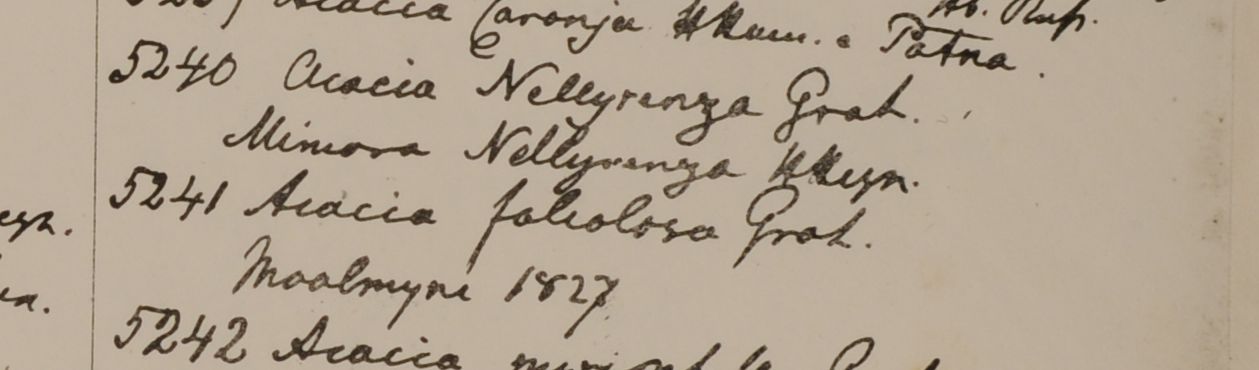 Acacia Caronja HHam. e Patna.
Hb. Ruff.
5240 Acacia Nellyrenza Grah.
Mimosa Nellyrenza HHeyn.
5241 Acacia falcolosa Grah.
Moalmyne 1827
5242 Acacia
eyn.